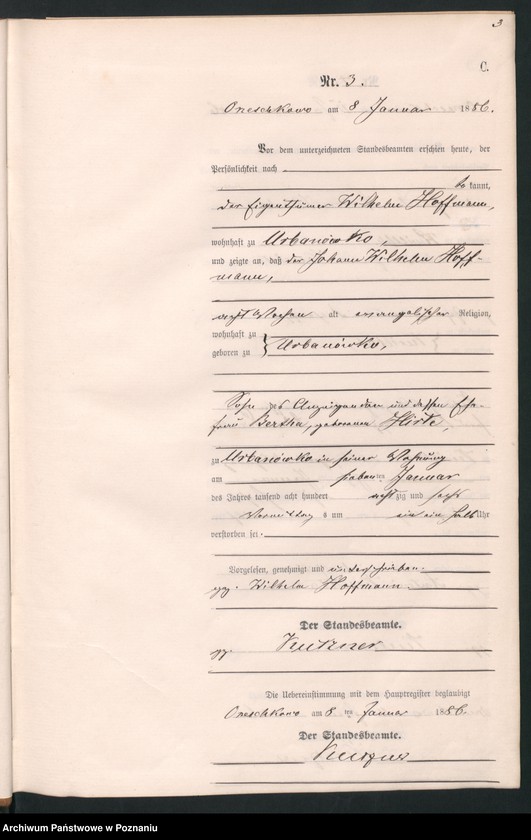 3
C.
Nr. 3.
Oneschkowo am 8 Januar 1886.
Vor dem unterzeichneten Standesbeamten erschien heute, der
Persönlichkeit nach
bekannt,
der Eigenthümer Wilhelm Hoffmann,
wohnhaft zu Urbanówko,
und zeigte an, daß der Johann Wilhelm Hoff-
mann,
acht Wochen alt evangelischer Religion,
wohnhaft zu
geboren zu } Urbanówko,
Sohn des Anzeigenden und dessen Ehe-
frau Bertha, geborenen Hirte,
zu Urbanówko in seiner Wohnung
am sieben ten Januar
des Jahres tausend acht hundert achtzig und sechs
Vormittags um ein ein halb Uhr
verstorben sei.
Vorgelesen, genehmigt und unterschrieben.
gez. Wilhelm Hoffmann.
Der Standesbeamte.
gez.
Die Uebereinstimmung mit dem Hauptregister beglaubigt
Oneschkowo am 8 ten Januar 1886.
Der Standesbeamte.
Archiwum Państwowe w Poznaniu